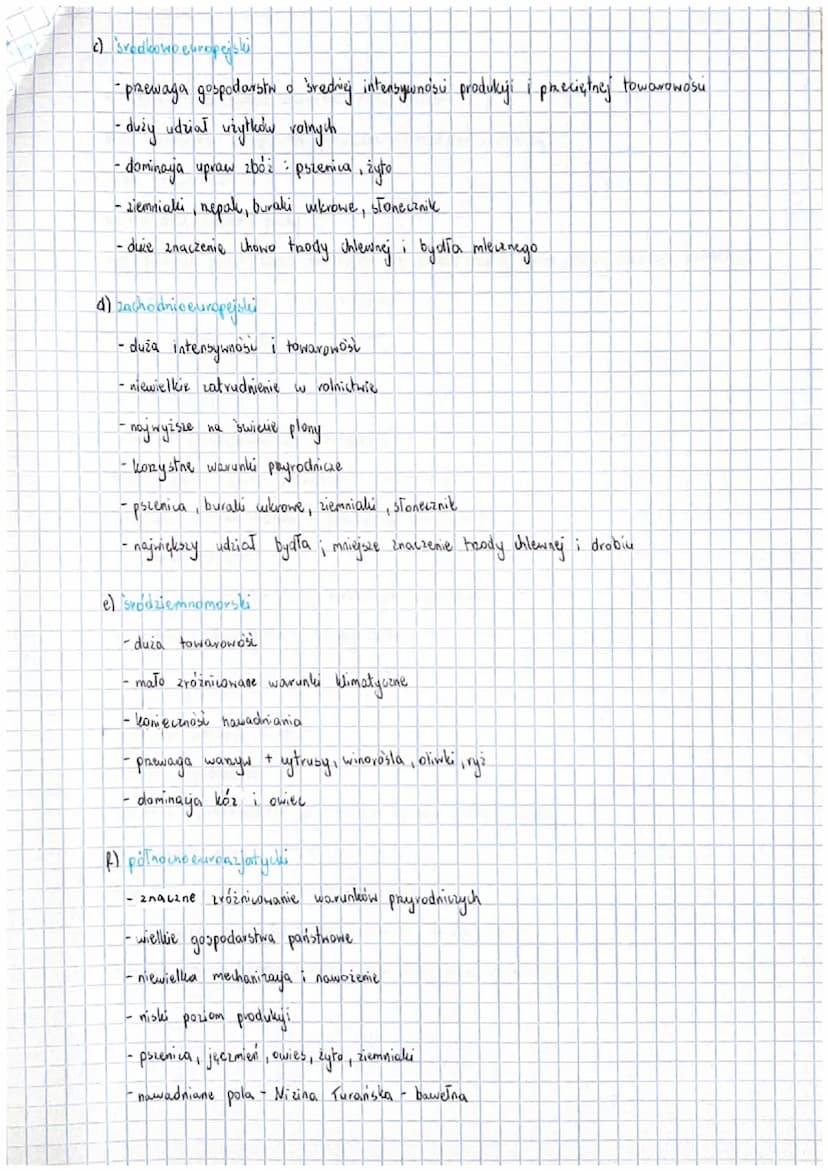 c) środkowoeuropejski
- przewaga gospodarstw o średniej intensywności produkcji i przeciętnej towarowości
- duży udział użytków rolnych
- dominacja upraw zbóż : pszenica, żyto
- ziemniaki, rzepak, buraki cukrowe, słonecznik
- duże znaczenie chowo trzody chlewnej i bydła mlecznego
d) zachodnioeuropejski
- duża intensywność i towarowość
- niewielkie zatrudnienie w rolnictwie
- najwyższe na świecie plony
- korzystne warunki przyrodnicze
- pszenica, buraki cukrowe, ziemniaki, słonecznik
- największy udział bydła ; mniejsze znaczenie trzody chlewnej i drobiu
e) śródziemnomorski
- duża towarowość
- mało zróżnicowane warunki klimatyczne
- konieczność nawadniania
- przewaga warzyw + cytrusy, winorośla, oliwki, ryż
- dominacja kóz i owiec
f) północnoeuroazjatycki
- znaczne zróżnicowanie warunków przyrodniczych
- wielkie gospodarstwa państwowe
- niewielka mechanizacja i nawożenie
- niski poziom produkcji
- pszenica, jęczmień, owies, żyto, ziemniaki
- nawadniane pola - Nizina Turańska - bawełna